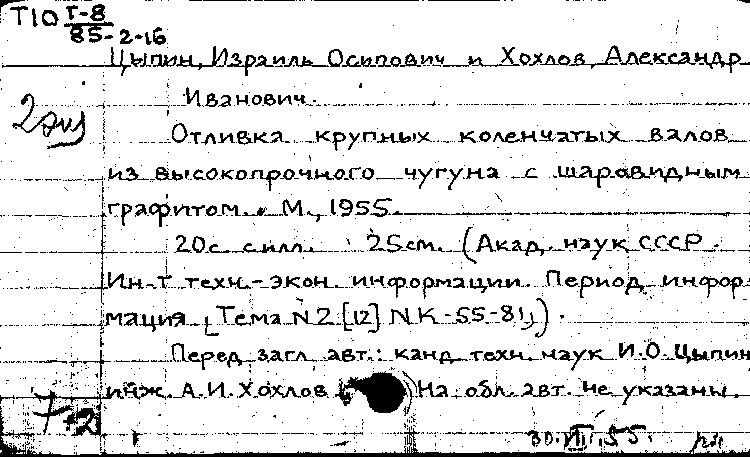 Т10 Г-8
85-2-16
Цыпин, Израиль Осипович и Хохлов, Александр
Иванович.
2 экз
Отливка крупных коленчатых валов
из высокопрочного чугуна с шаровидным
графитом. М., 1955.
20 с. с илл. 25 см. (Акад. наук СССР.
Ин-т техн.-экон. информации. Период. инфор-
мация. Тема N 2 [12] N К-55-81).
Перед загл. авт.: канд. техн. наук И.О. Цыпин,
инж. А.И. Хохлов. На обл. авт. не указаны.
7+2
30.VIII.55.